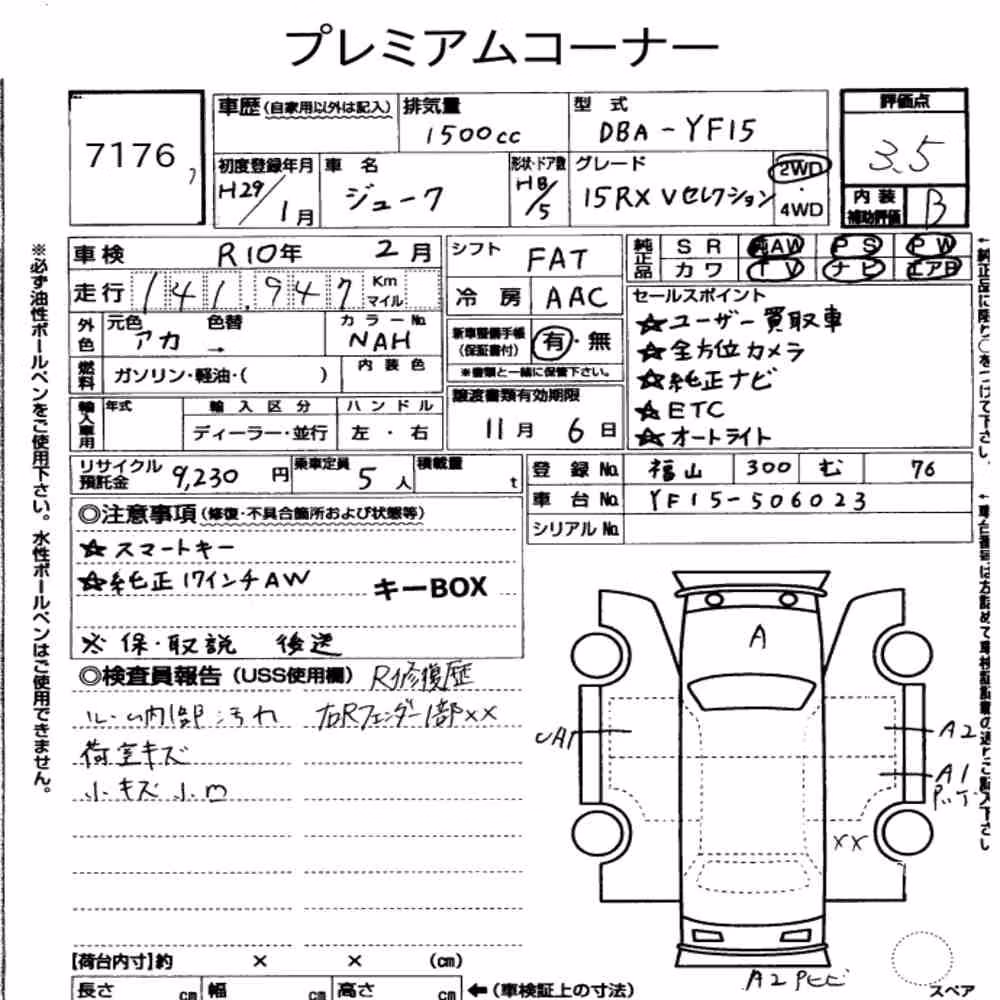 プレミアムコーナー
7176
車歴(自家用以外は記入)
排気量
1500cc
型式
DBA-YF15
評価点
3.5
初度登録年月
H29/1月
車名
ジューク
形状・ドア数
HB/5
グレード
15RX Vセレクション
2WD
・
4WD
内装
補助評価
B
車検 R10年 2月
シフト
FAT
純正品
SR 純AW PS PW
カワ TV ナビ エアB
走行 141,947 Km
マイル
冷房 AAC
セールスポイント
☆ユーザー買取車
☆全方位カメラ
☆純正ナビ
☆ETC
☆オートライト
外色
元色 色替
アカ →
カラーNo.
NAH
新車整備手帳
(保証書付)
有・無
※書類と一緒に保管下さい。
燃料
ガソリン・軽油・( )
内装色
輸入車用
年式
輸入区分
ディーラー・並行
ハンドル
左・右
譲渡書類有効期限
11月 6日
リサイクル
預託金 9,230円
乗車定員
5人
積載量
t
登録No. 福山 300 む 76
車台No. YF15-506023
シリアルNo.
◎注意事項(修復・不具合箇所および状態等)
☆スマートキー
☆純正17インチAW
キーBOX
※保・取説 後送
◎検査員報告(USS使用欄) R修復歴
ルーム内部汚れ 右Rフェンダー1部××
荷室キズ
小キズ小凹
A
UA1
A2
A1
××
A2
スペア
【荷台内寸】約 × × (cm)
長さ cm 幅 cm 高さ cm ←(車検証上の寸法)
※必ず油性ボールペンをご使用下さい。水性ボールペンはご使用できません。